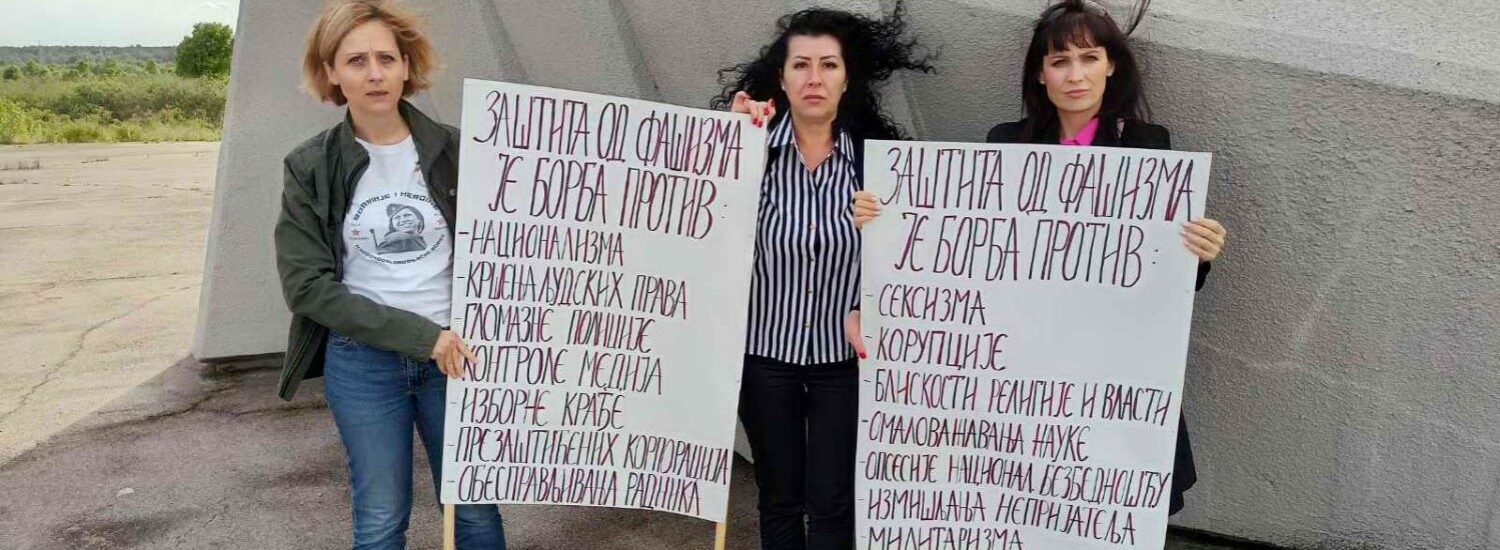 BORKINJE I
ЗАШТИТА ОД ФАШИЗМА
ЈЕ БОРБА ПРОТИВ:
-НАЦИОНАЛИЗМА
-КРШЕЊА ЉУДСКИХ ПРАВА
-ГЛОМАЗНЕ ПОЛИЦИЈЕ
-КОНТРОЛЕ МЕДИЈА
-ИЗБОРНЕ КРАЂЕ
-ПРЕЗАШТИЋЕНИХ КОРПОРАЦИЈА
-ОБЕСПРАВЉИВАЊА РАДНИКА
ЗАШТИТА ОД ФАШИЗМА
ЈЕ БОРБА ПРОТИВ:
-СЕКСИЗМА
-КОРУПЦИЈЕ
-БЛИСКОСТИ РЕЛИГИЈЕ И ВЛАСТИ
-ОМАЛОВАЖАВАЊА НАУКЕ
-ОПСЕСИЈЕ НАЦИОНАЛ. БЕЗБЕДНОШЋУ
-ИЗМИШЉАЊА НЕПРИЈАТЕЉА
-МИЛИТАРИЗМА